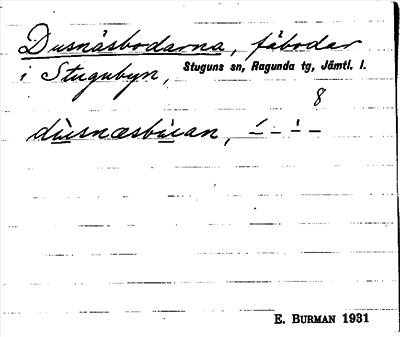 Dusnäsbodarna, fäbodar
i Stugubyn, Stuguns sn, Ragunda tg, Jämtl. l.
8
dùsnæsbùan, ´ – ' –
E. BURMAN 1931